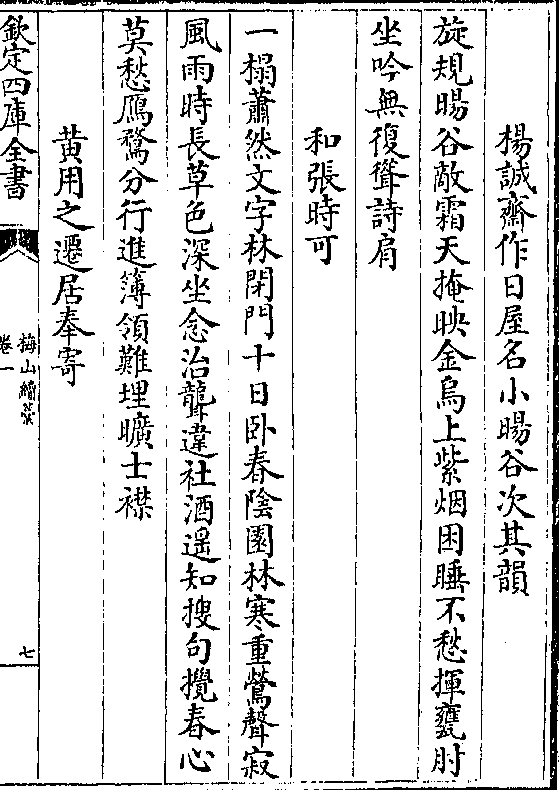 楊誠齋作日屋名小暘谷次其韻
旋規暘谷敵霜天掩映金烏上紫烟困睡不愁揮甕肘
坐吟無復聳詩肩
和張時可
一榻蕭然文字林閉門十日卧春陰園林寒重鶯聲寂
風雨時長草色深坐念治聾違社酒遥知搜句攪春心
莫愁鴈鶩分行進簿領難埋曠士襟
黄用之遷居奉寄
欽定四庫全書
梅山續藁
卷一
七